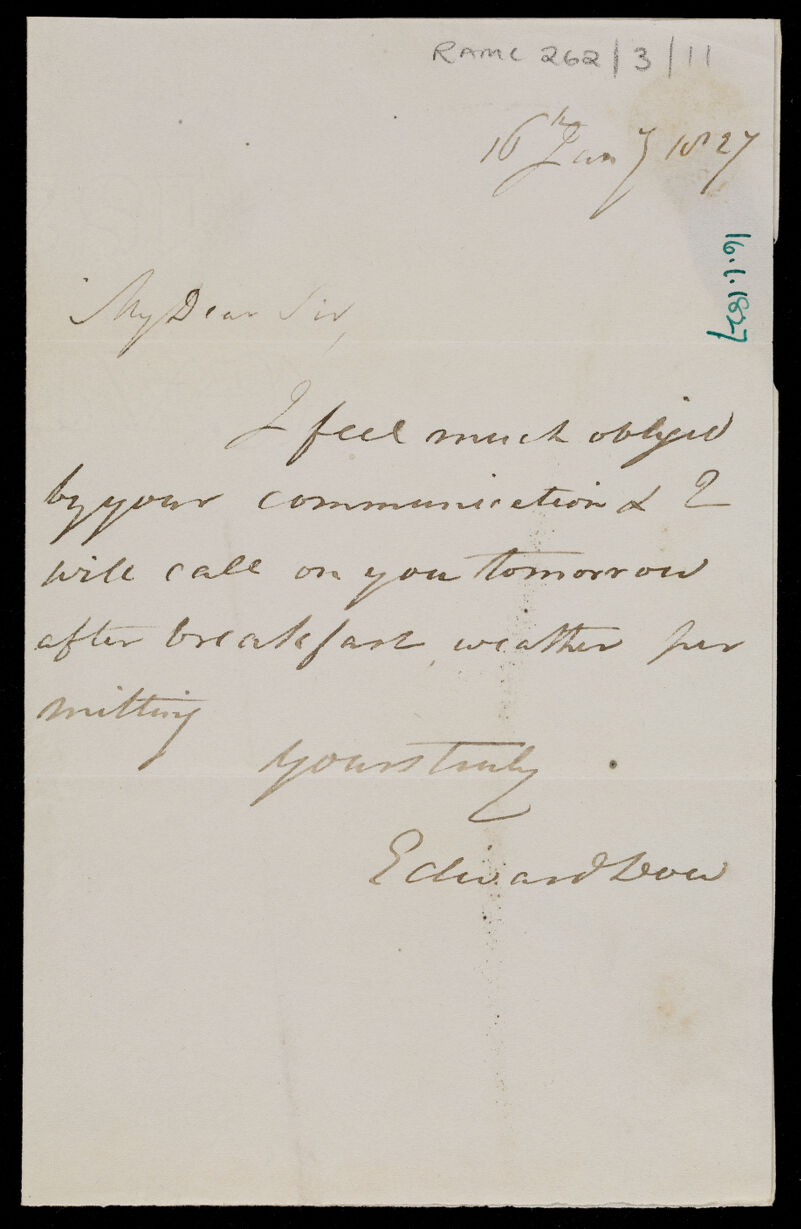 RAMC 262/3/11
16th Jany 1827
16.1.1827
My Dear Sir,
I feel much obliged
by your communication & I
will call on you tomorrow
after breakfast, weather per
mitting
yours truly
Edward Dow